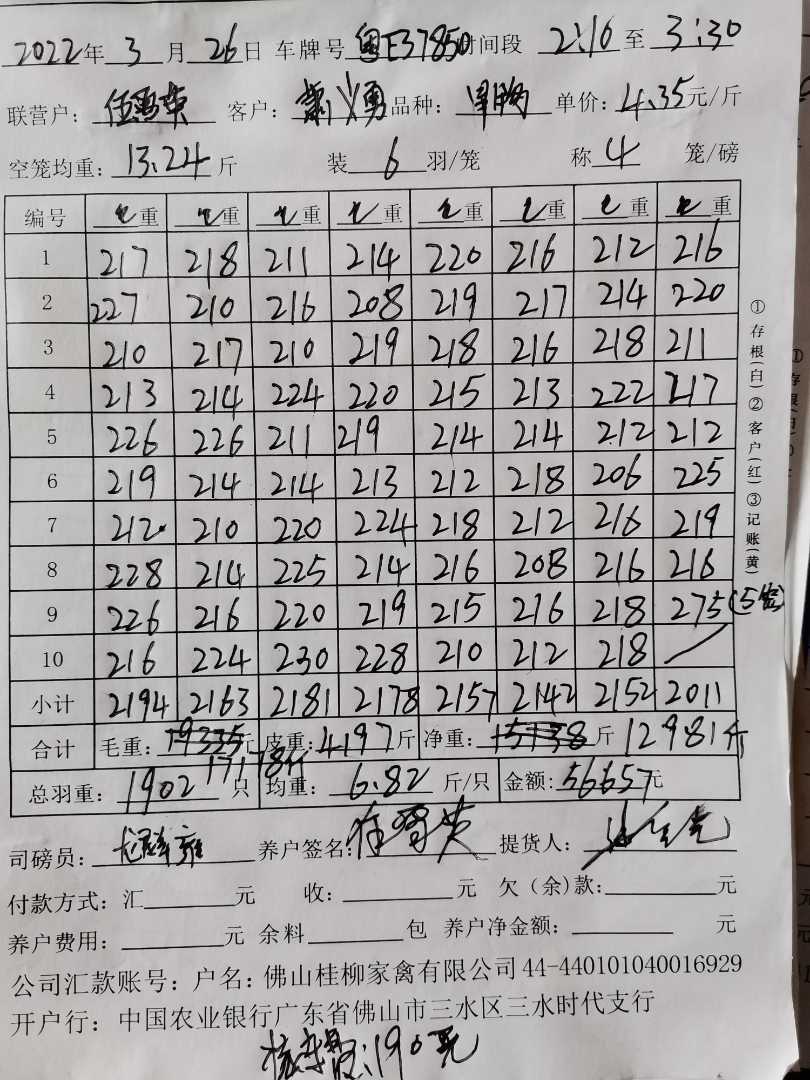 2022年 3 月 26日 车牌号 粤E37850 时间段 2:10 至 3:30
联营户: 客户: 萧义勇 品种: 单价: 4.35元/斤
空笼均重: 13.24 斤 装 6 羽/笼 称 4 笼/磅
编号 重 重 重 重 重 重 重 重
1 217 218 211 214 220 216 212 216
2 227 210 216 208 219 217 214 220
3 210 217 210 219 218 216 218 211
4 213 214 224 220 215 213 222 217
5 226 226 211 219 214 214 212 212
6 219 214 214 213 212 218 206 225
7 212 210 220 224 218 212 216 219
8 228 214 225 214 216 208 216 216
9 226 216 220 219 215 216 218 275(5笼)
10 216 224 230 228 210 212 218
小计 2194 2163 2181 2178 2157 2142 2152 2011
合计 毛重: 19335元 皮重: 4197斤 净重: 15138斤 12981斤
17178斤
总羽重: 1902 只 均重: 6.82 斤/只 金额: 56657元
司磅员: 养户签名: 提货人:
付款方式: 汇 元 收: 元 欠(余)款: 元
养户费用: 元 余料 包 养户净金额: 元
公司汇款账号: 户名: 佛山桂柳家禽有限公司 44-440101040016929
开户行: 中国农业银行广东省佛山市三水区三水时代支行
:190元
①存根(白)②客户(红)③记账(黄)